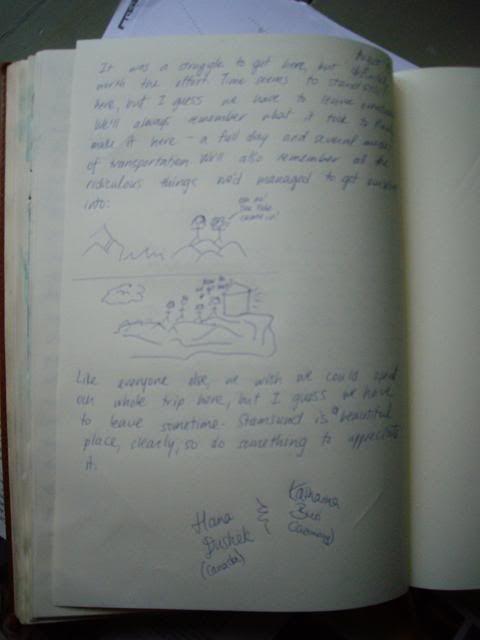 It was a struggle to get here, but definitely
worth the effort. Time seems to stand still
here, but I guess we have to leave sometime.
We'll always remember what it took to
make it here - a full day and several modes
of transportation. We'll also remember all the
ridiculous things we'd managed to get ourselves
into:
oh no!
The tide
came in!
Like everyone else, we wish we could spend
our whole trip here, but I guess we have
to leave sometime. Stamsund is a beautiful
place, clearly, so do something to appreciate
it.
Hana
(Canada)
&
Katharina
(Germany)